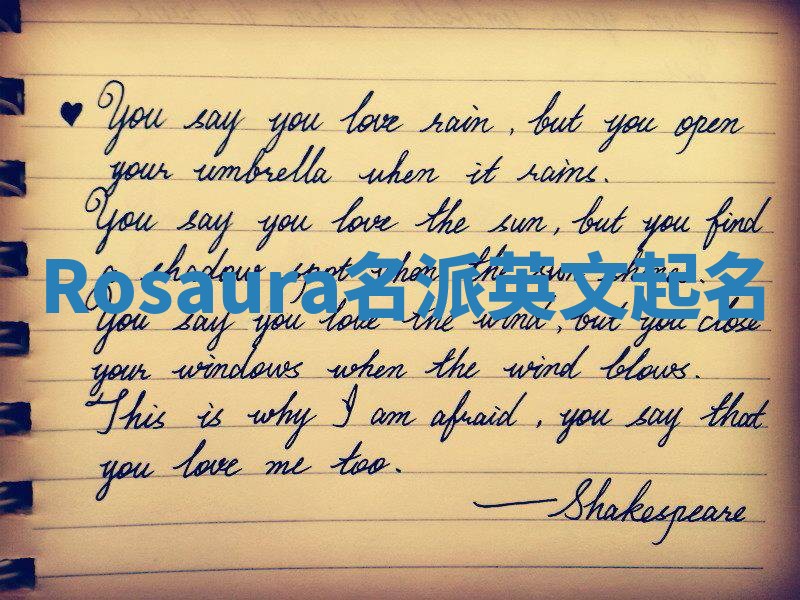 ♥ You say you love rain, but you open
your umbrella when it rains.
You say you love the sun, but you find
a shadow spot when the sun shines.
Rosaura名派英文起名
You say you love the wind, but you close
your windows when the wind blows.
This is why I am afraid, you say that
you love me too.
— Shakespeare